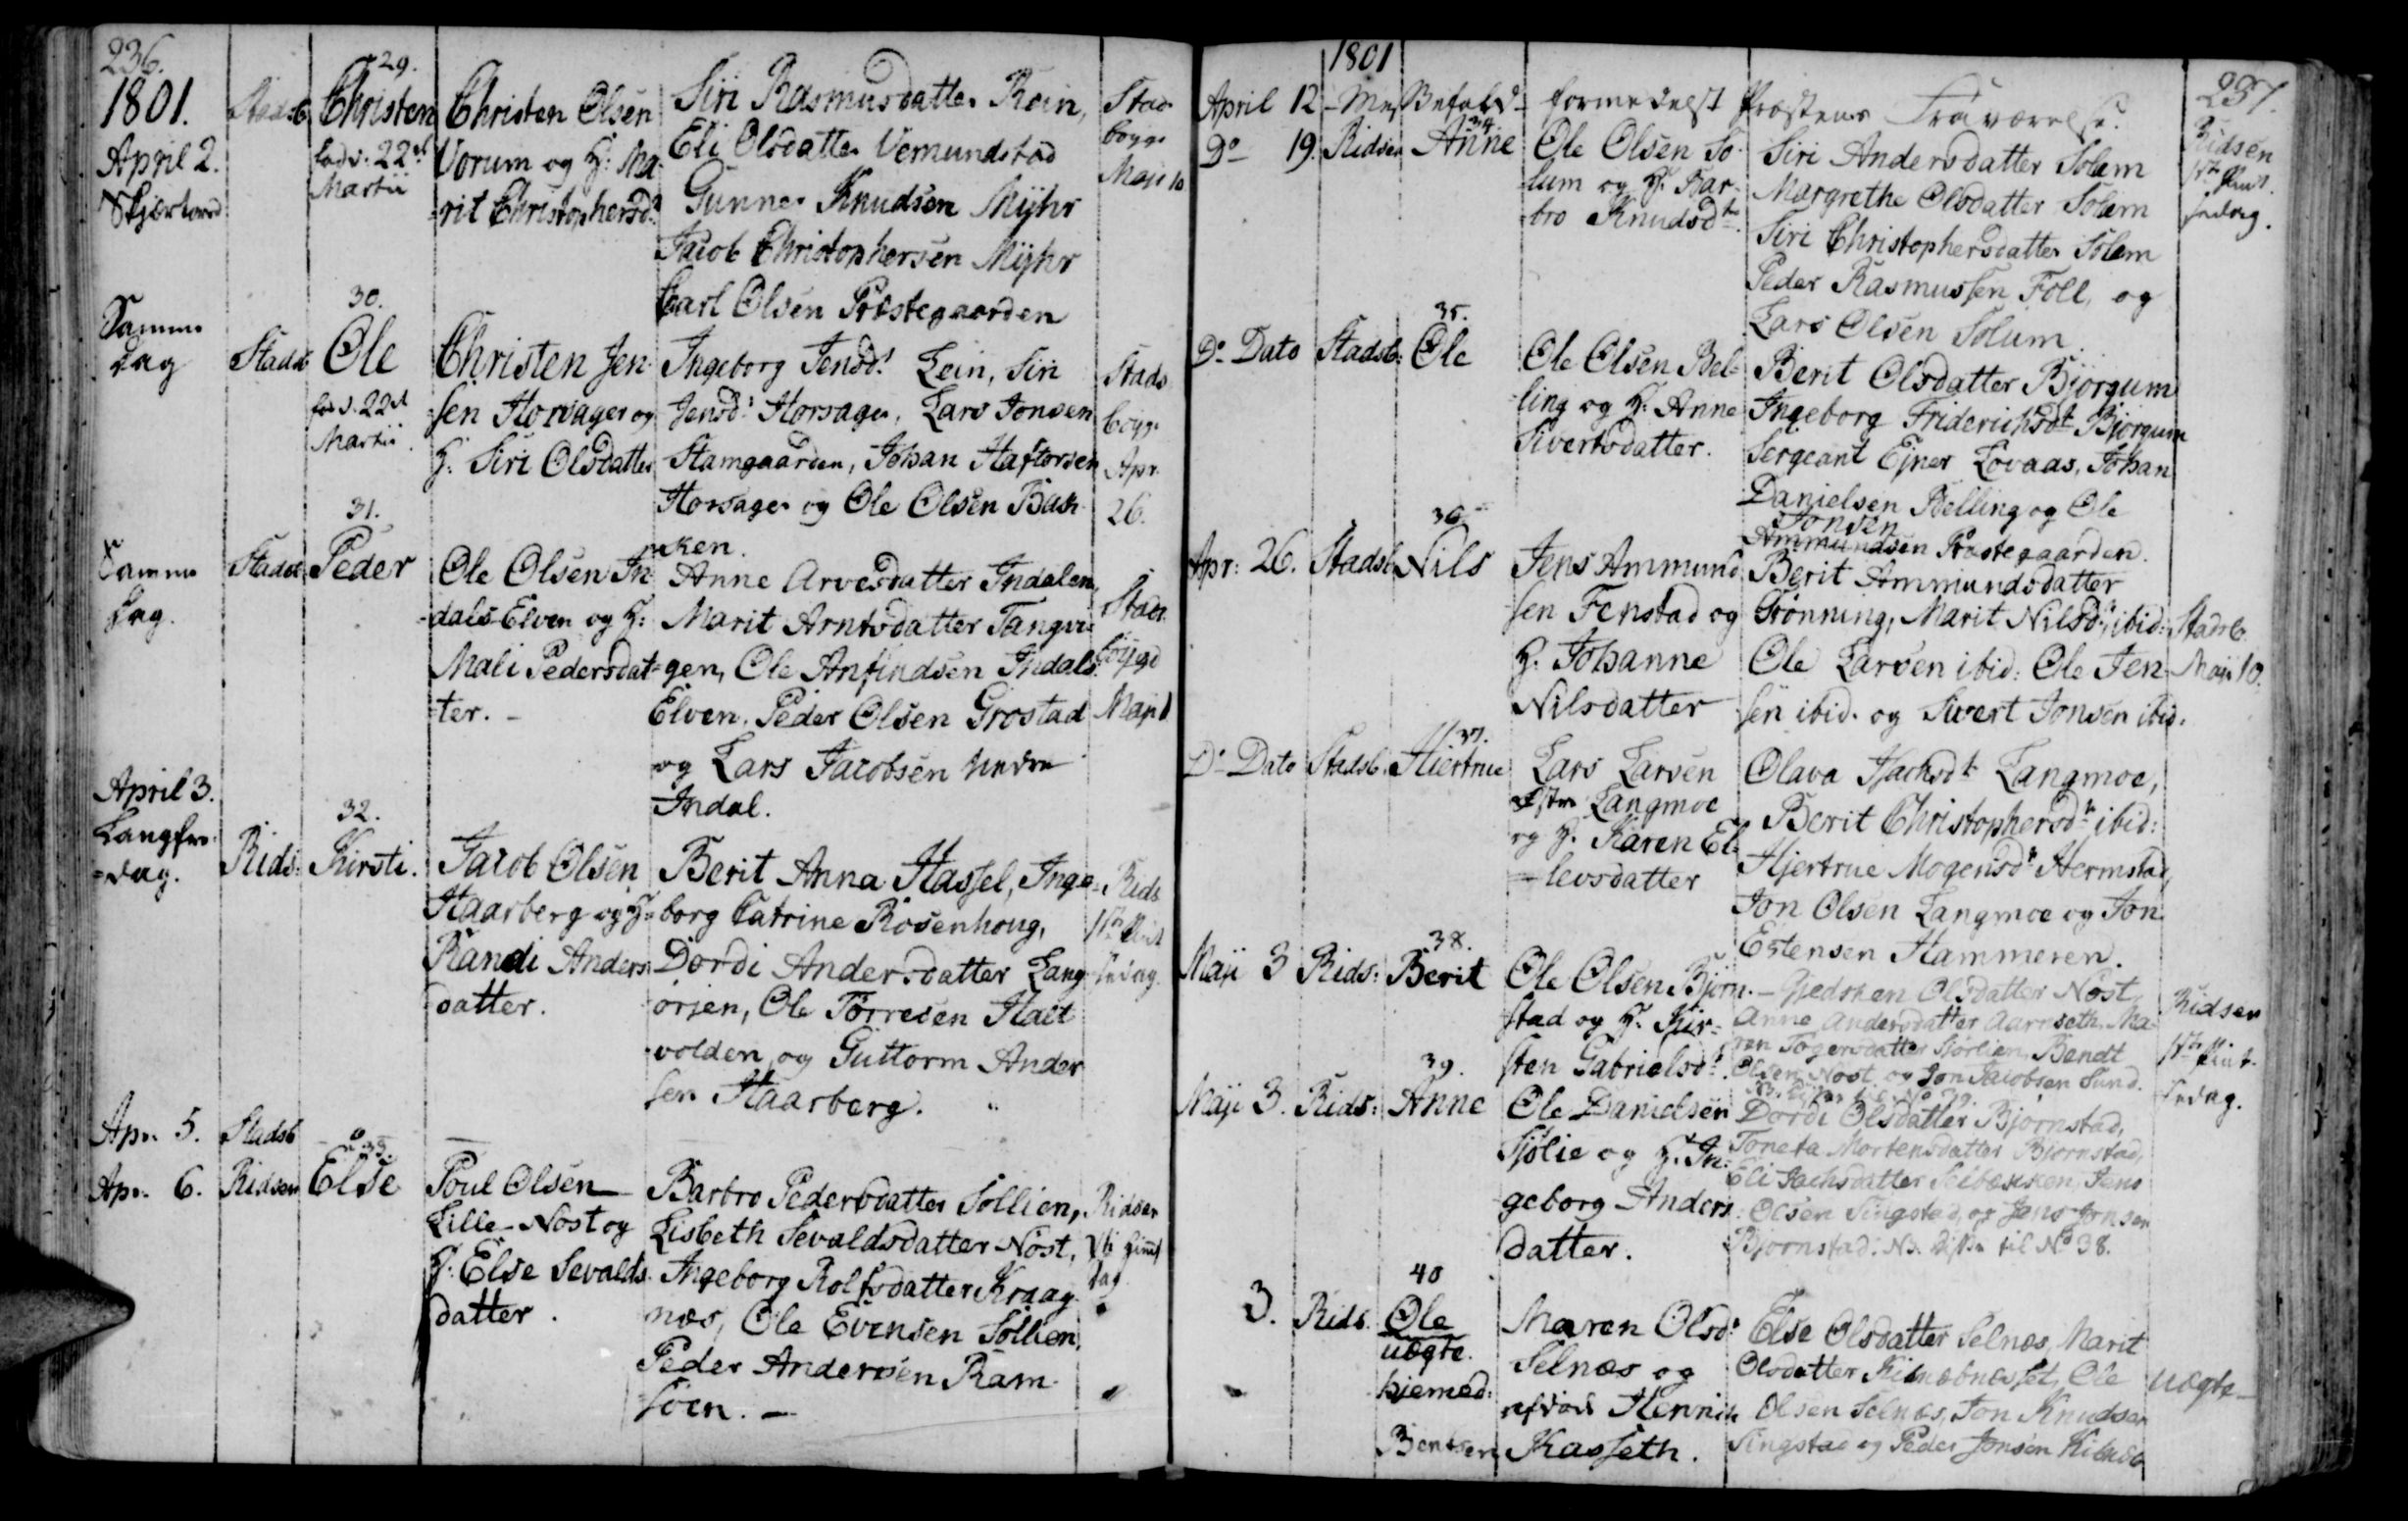 236.
1801.
April 2.
Skjertorsd
Stadsb
29.
Christen
fød d. 22de
Martii
Christen Olsen
Vorum og H: Ma-
rit Christophersd:
Siri Rasmusdatter Rein,
Eli Olsdatter Vemundstad
Gunner Knudsen Myhr
Jacob Christophersen Myhr
Carl Olsen Præstegaarden
Stads
bøygd
Maji 10
Samme
Dag
Stadsb
30.
Ole
fød d. 22de
Martii
Christen Jen-
sen Horsager og
H: Siri Olsdatter
Ingeborg Jensd: Lein, Siri
Jensd: Horsager, Lars Jonsen
Stamgaarden, Johan Haftorsen
Horsager og Ole Olsen Bak-
ken.
Stads
bøygd
Apr.
26.
Samme
Dag.
Stadsb
31.
Peder
Ole Olsen In-
dals-Elven og H:
Mali Pedersdat-
ter. -
Anne Arvesdatter Indalen,
Marit Arntsdatter Tangvi-
gen, Ole Anfindsen Indals-
Elven, Peder Olsen Grostad
og Lars Jacobsen nedre
Indal.
Stads
bøygd
Maji 1
April 3.
Langfre-
dag.
Rids:
32.
Kirsti.
Jacob Olsen
Haarberg og H:
Randi Anders-
datter.
Berit Anna Hassel, Inge-
borg Catrine Rosenhoug,
Dordi Andersdatter Lang-
örjen, Ole Torresen Halt-
volden, og Guttorm Ander-
sen Haarberg.
Rids
1ste Pint-
sedag.
Apr. 5. Stadsb 0
Apr. 6. Ridsen
33.
Else
Poul Olsen
Lille-Nost og
H: Else Sevalds-
datter.
Barbro Pedersdatter Sollien,
Lisbeth Sevaldsdatter Nost,
Ingeborg Rolfsdatter Kraag-
næs, Ole Evensen Sollien,
Peder Andersen Ram-
söen. -
Ridsen
dag
1801
237.
April 12 - Mes Befald - formedelst Præstens Fraværelse.
Do 19. Ridsen
34.
Anne
Ole Olsen So-
lum og H: Bar-
bro Knudsdtr.
Siri Andersdatter Solem
Margrethe Olsdatter Solem
Siri Christophersdatter Solem
Peder Rasmussen Foll, og
Lars Olsen Solum.
Ridsen
1ste Pint-
sedag.
Do Dato Stadsb:
35.
Ole
Ole Olsen Bel-
ling og H: Anne
Sivertsdatter.
Berit Olsdatter Bjorgum
Ingeborg Friderichsdt Bjorgum
Sergeant Ejner Lovaas, Johan
Danielsen Belling og Ole
Jonsen
Ammundsen Præstegaarden.
Apr: 26. Stadsb
36.
Nils
Jens Ammund-
sen Fenstad og
H: Johanne
Nilsdatter
Berit Ammundsdatter
Grönning, Marit Nilsd:, ibid:
Ole Larsen ibid: Ole Jen-
sen ibid. og Sivert Jonsen ibid.
Stadsb.
Maji 10.
Do Dato Stadsb.
37.
Hiertrue
Lars Larsen
Östre Langmoe
og H: Karen El-
levsdatter
Olava Isachsdt Langmoe,
Berit Christophersdtr ibid:
Hjertrue Mogensdtr Hermstad,
Jon Olsen Langmoe og Jon
Estensen Hammeren.
Maji 3 Rids:
38.
Berit
Ole Olsen Björn-
stad og H: Kir-
sten Gabrielsd:
Gjedsken Olsdatter Nost,
Anne Andersdatter Aarnseth, Ma-
ren Togersdatter Sjörlien, Bendt
Olsen Nost og Jon Jacobsen Sund.
NB. disse til No 39.
Ridsen
1ste Pint-
sedag.
Maji 3. Rids:
39.
Anne
Ole Danielsen
Sjölie og H: In-
geborg Anders-
datter.
Dordi Olsdatter Bjornstad,
Toneta Mortensdatter Biornstad,
Eli Isachsdatter Selbækken, Jens
Olsen Singstad, og Jens Jonsen
Bjoornstad. NB. disse til No 38.
3. Rids.
40
Ole
uægte.
hjemmed:
Maren Olsd:
Selnæs og
afdöde Henrik
Bentsen Kasseth.
Else Olsdatter Selnæs, Marit
Olsdatter, Ole
Olsen Selnæs, Jon Knudsen
Singstad og Peder Jonsen
uægte